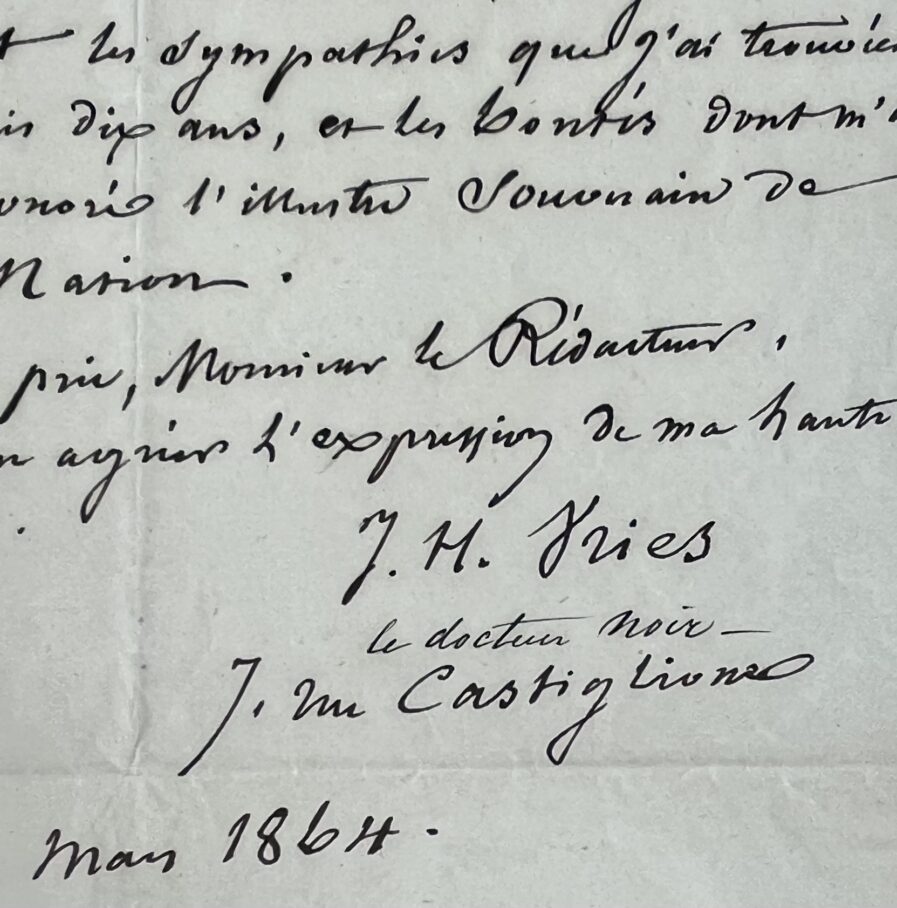 t les sympathies que j'ai trouvées
is dix ans, et les bontés dont m'a
onoré l'illustre Souverain de
Nation.
prie, Monsieur le Rédacteur,
agréer l'expression de ma haute
.
J. H. Vries
le docteur noir —
7. rue Castiglione
mars 1864.